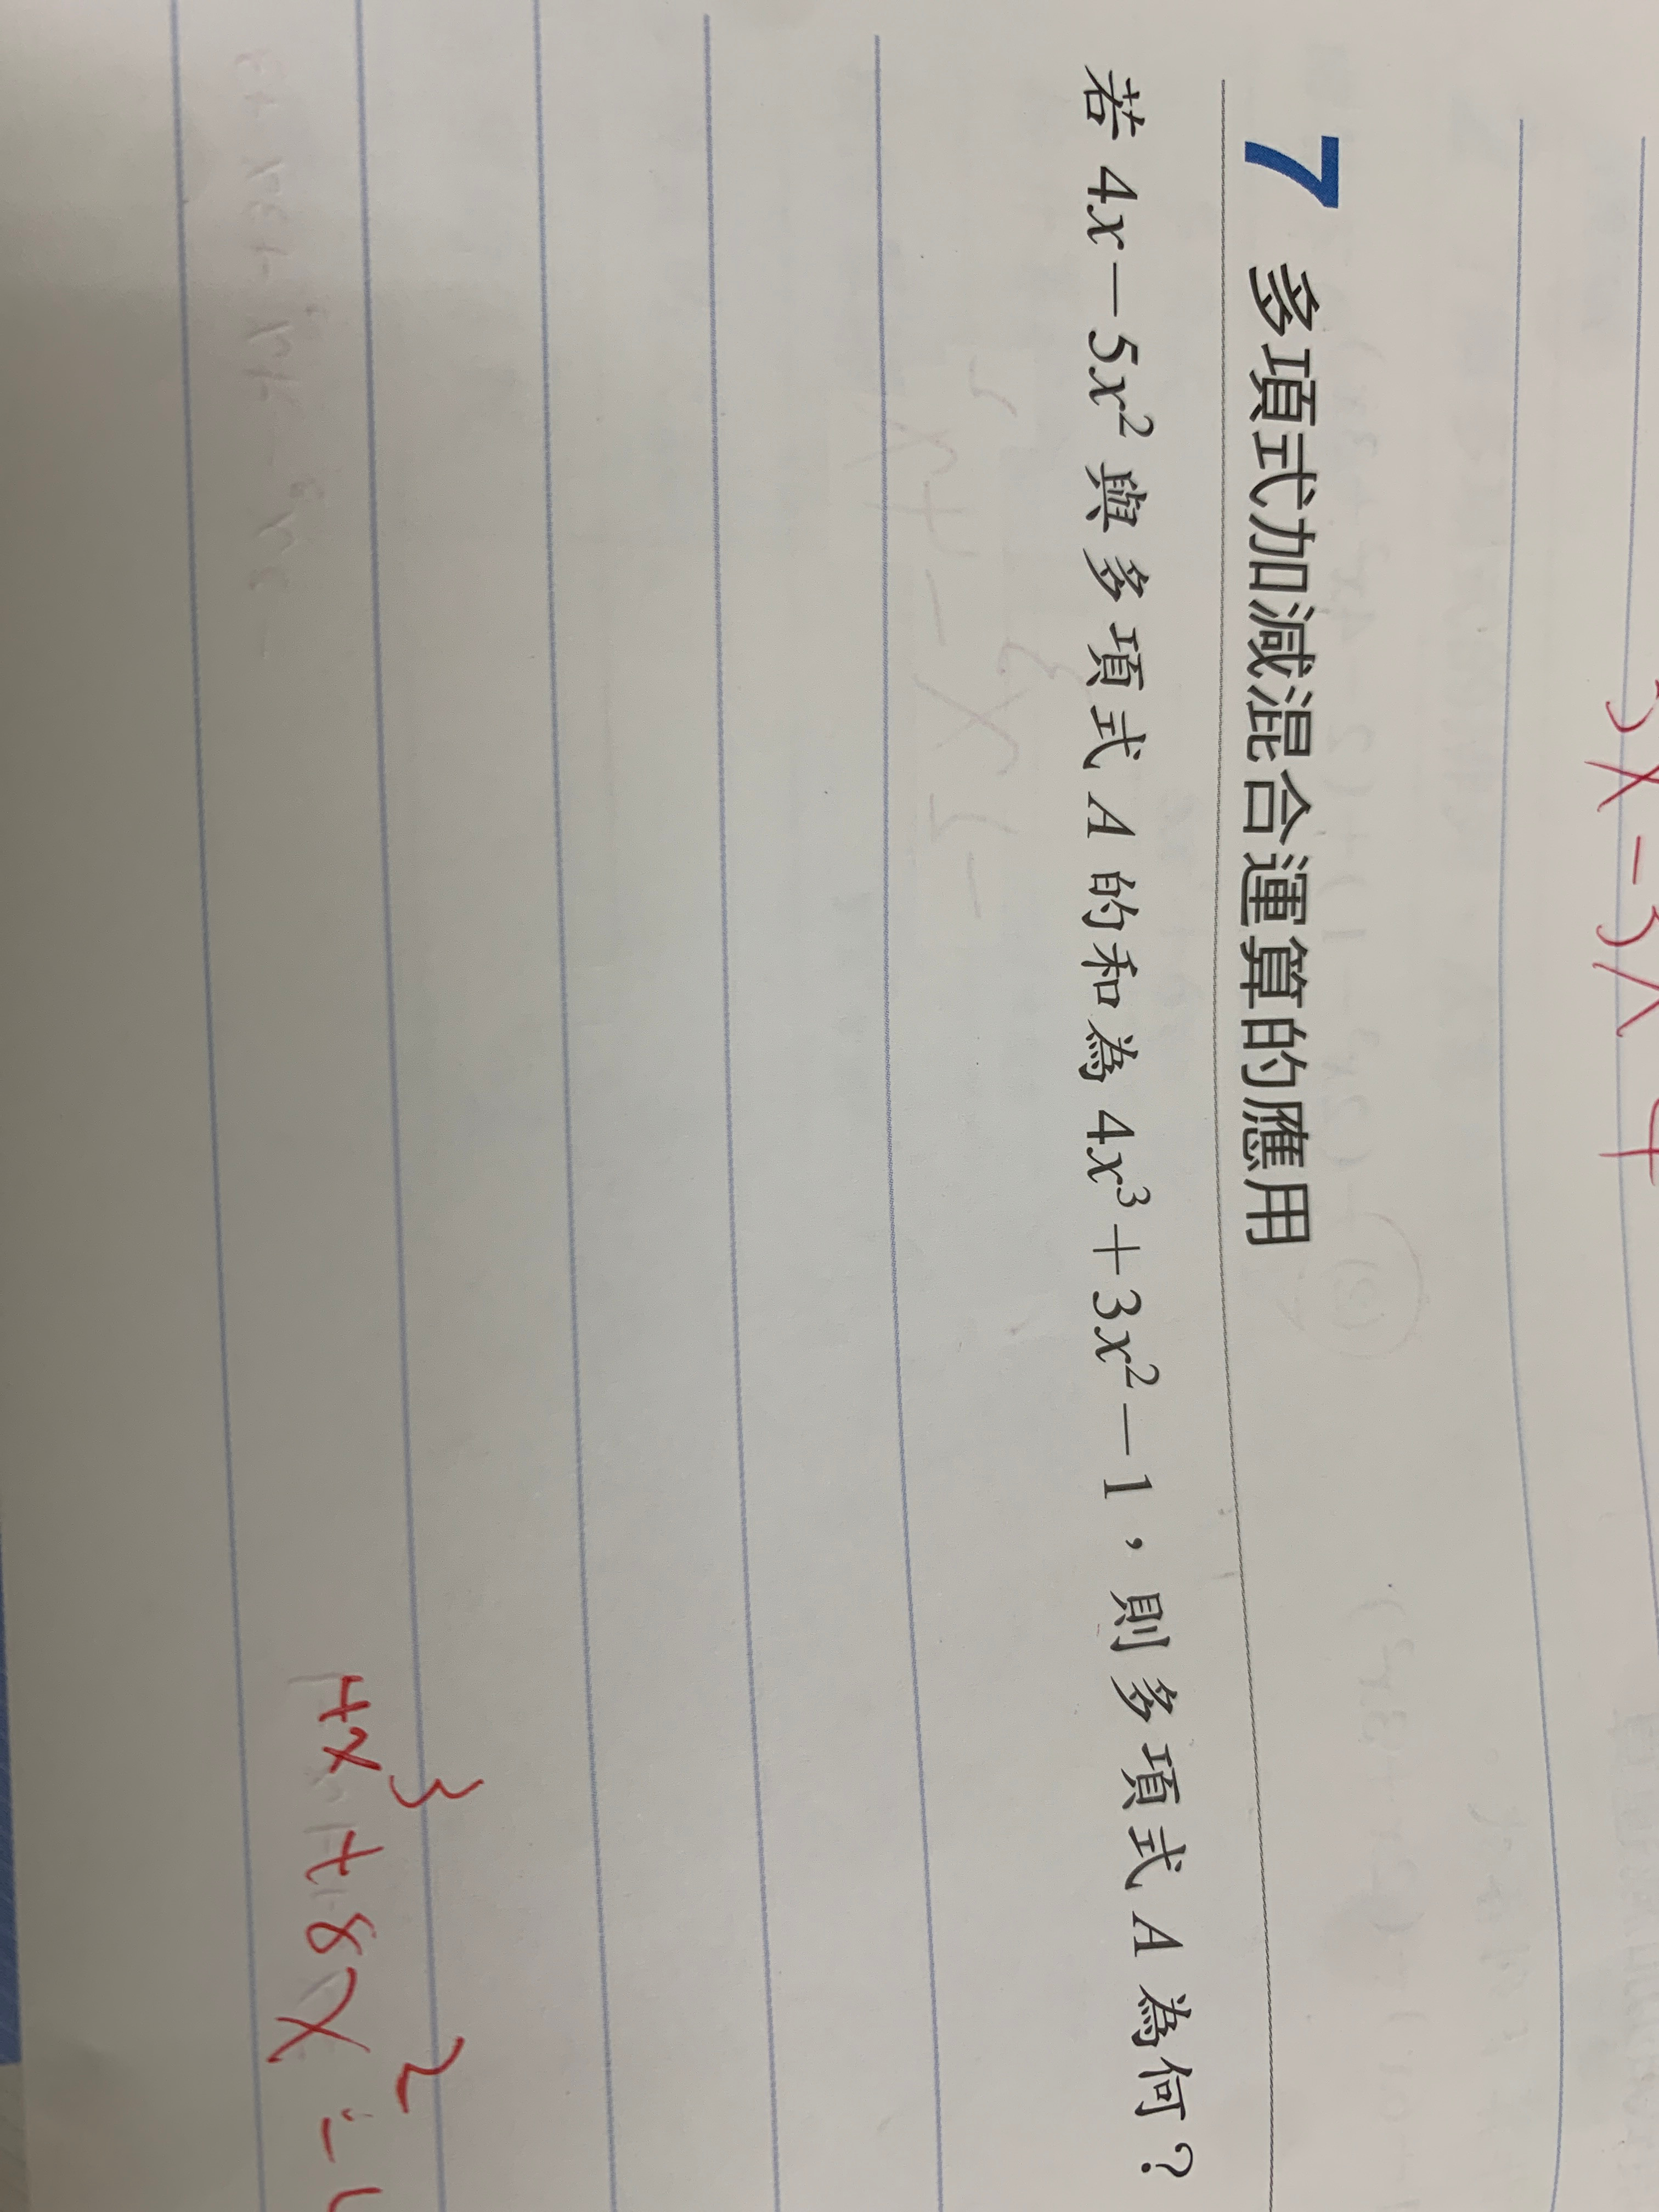 3x-3x
7 多項式加減混合運算的應用
若 4x－5x² 與多項式 A 的和為 4x³＋3x²－1，則多項式 A 為何？
4x³+8x²-